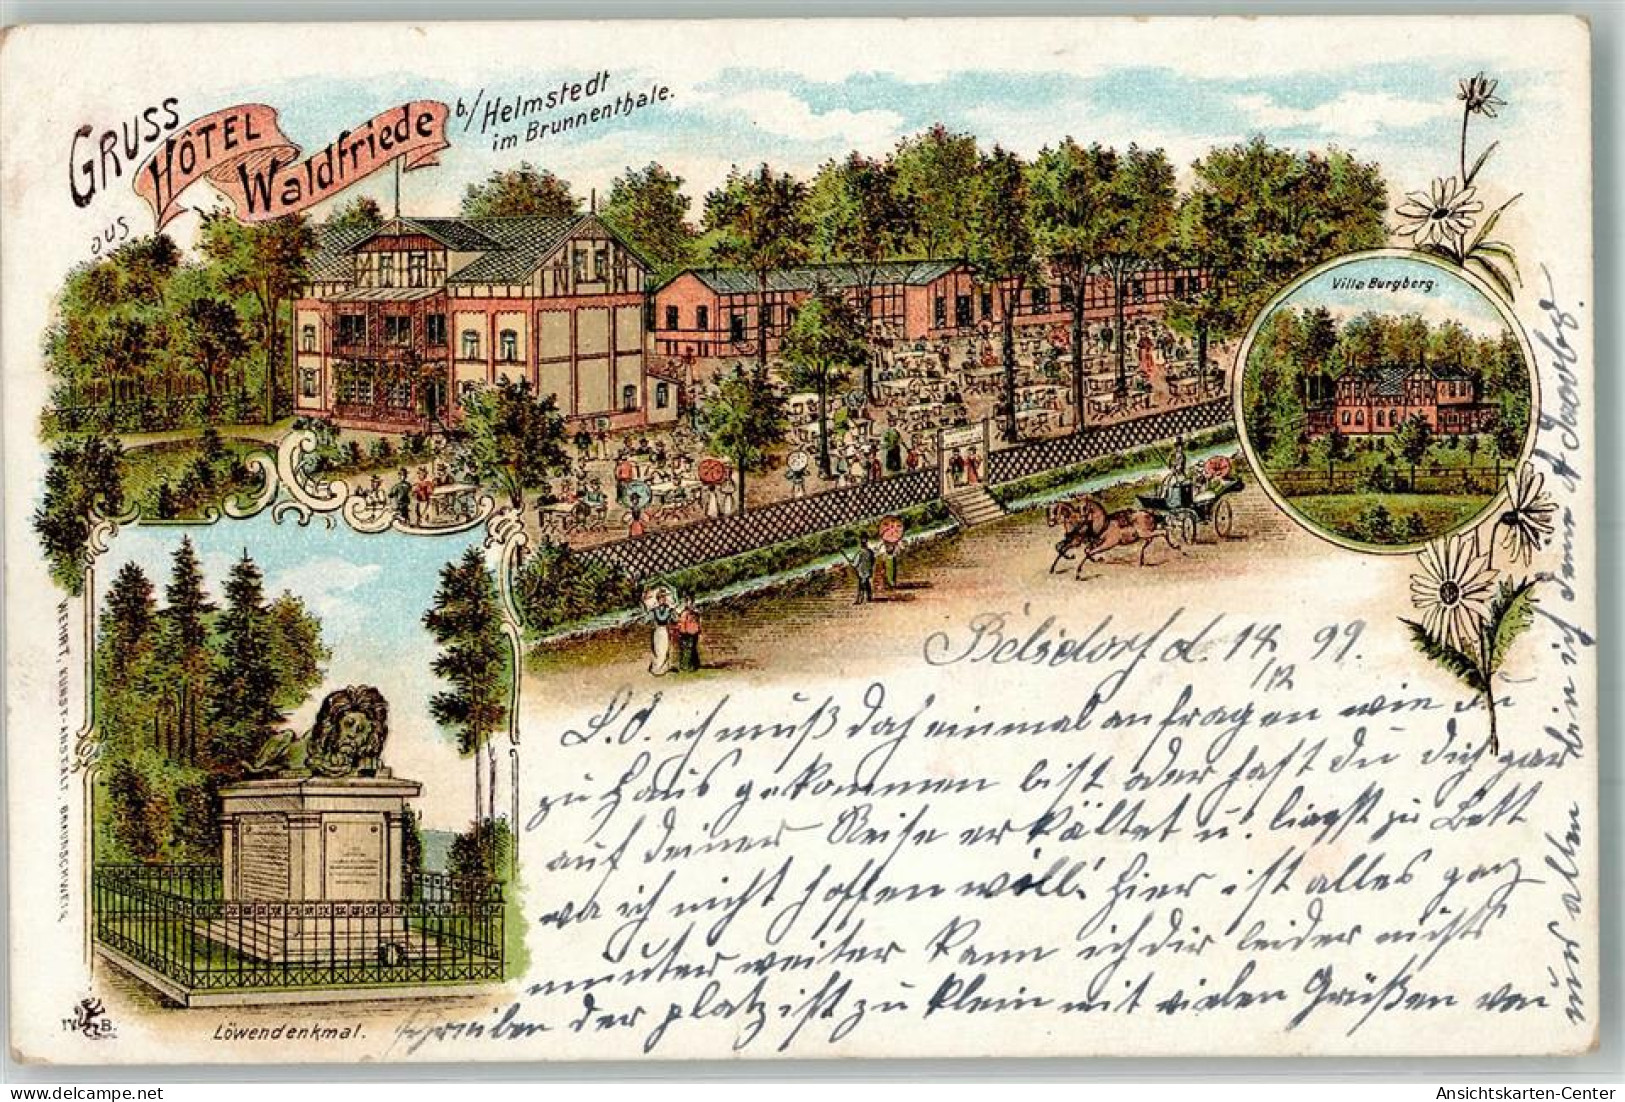 GRUSS
aus
HÔTEL
Waldfriede
b./Helmstedt
im Brunnenthale.
Villa Burgberg.
Löwendenkmal.
WEHRT, KUNST-ANSTALT, BRAUNSCHWEIG
W. B.
d. 14/12 99.
L. O. ich muß doch einmal anfragen wie Du
zu Haus gekommen bist oder hast Du Dich gar
auf deiner Reise erkältet u. liegst zu Bett
wa ich nicht hoffen will! Hier ist alles ganz
munter weiter kann ich dir leider nichts
schreiben der platz ist zu klein mit vielen Grüßen von
nur allen dein ich
Ansichtskarten-Center